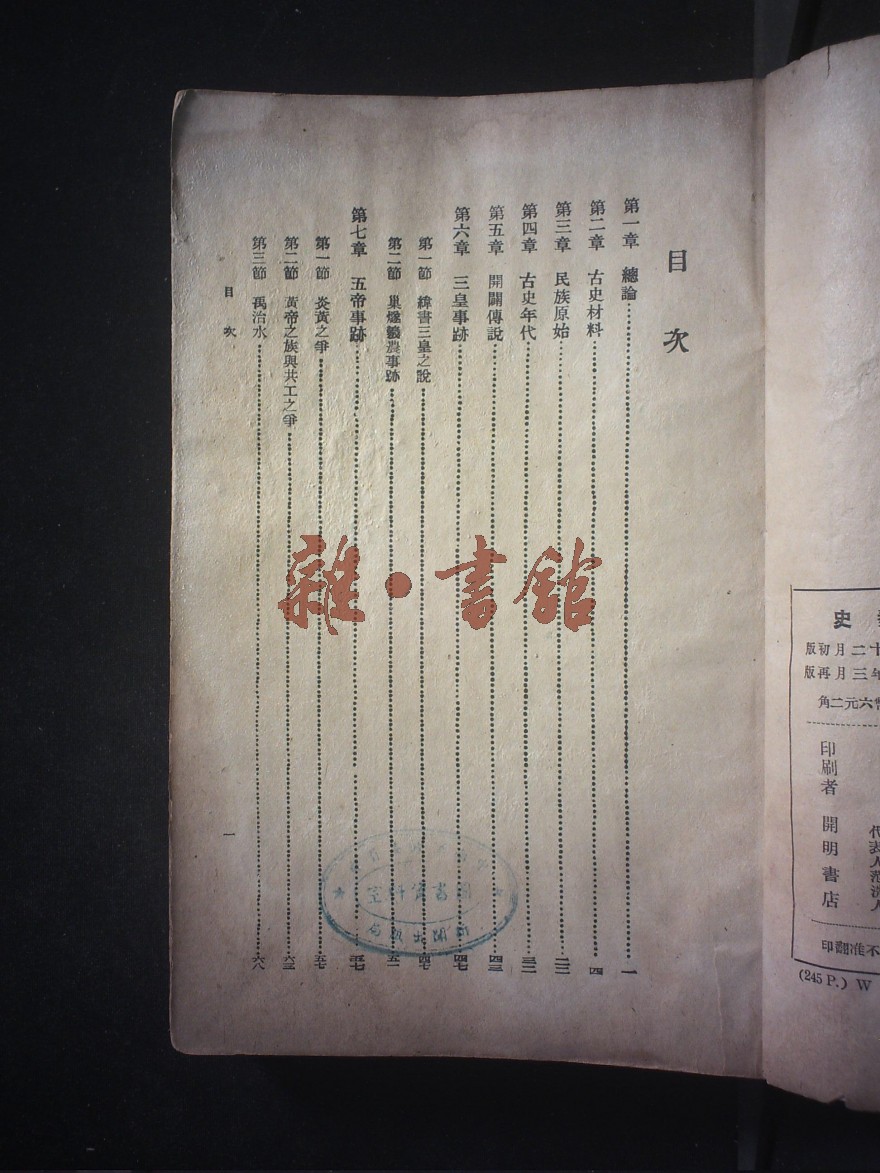 目次
第一章 總論 一
第二章 古史材料 四
第三章 民族原始
第四章 古史年代
第五章 開闢傳說
第六章 三皇事跡 四七
第一節 緯書三皇之說 四七
第二節 巢燧羲農事跡 五一
第七章 五帝事跡 五七
第一節 炎黃之爭 五七
第二節 黃帝之族與共工之爭
第三節 禹治水 六八
目次
一
雜·書館
圖書資料室
史
十二月初版
年三月再版
六元二角
印刷者 開明書店
代表人范洗人
不准翻印
(245 P.) W